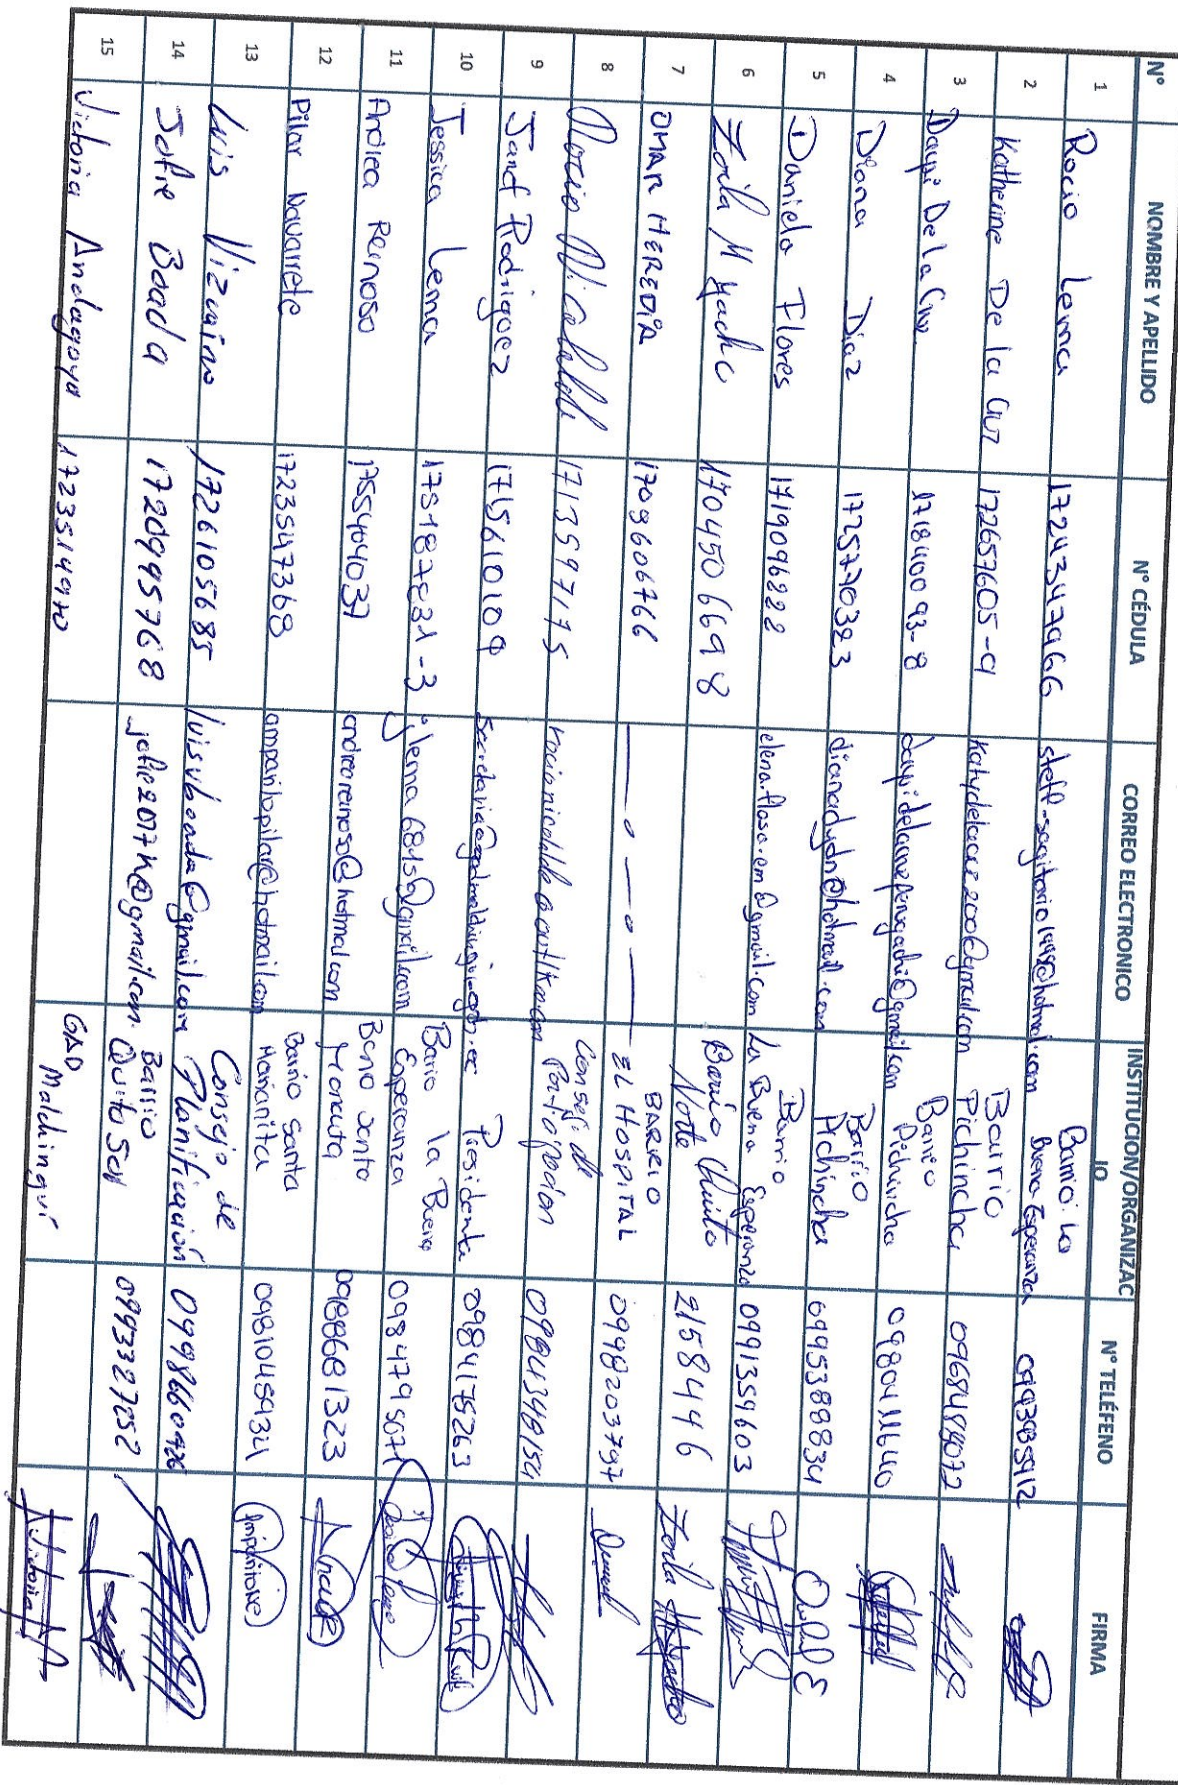 N° NOMBRE Y APELLIDO N° CÉDULA CORREO ELECTRONICO INSTITUCION/ORGANIZACIO N° TELÉFENO FIRMA
1 Rocio Lema 1724347966 steff-sagitario1998@hotmail.com Barrio: La Buena Esperanza 0993985912
2 Katherine De la Cruz 172657605-9 katydelacruz200@gmail.com Barrio Pichincha 0968484072
3 Daysi De la Cruz 171840093-8 Barrio Pichincha 0980411640
4 Diana Diaz 1725770323 dianadyjdn@hotmail.com Barrio Pichincha 0995388834
5 Daniela Flores 1719096222 Barrio La Buena Esperanza 0991359603
6 Zoila M Yacho 1704506698 Barrio Quito Norte 2158446 Zoila
7 OMAR HEREDIA 1709606766 BARRIO EL HOSPITAL 0998203797
8 Rocio Nicolalde 1713597175 Consejo de Participación 0984398154
9 Janet Rodriguez 1715610109 Presidenta 0984175263
10 Jessica Lema 175187831-3 jlema6815@gmail.com Bario la Buena Esperanza 0984795071
11 Andrea Reinoso 1755404037 andreareinoso@hotmail.com Barrio Santo Monauta 0988681323
12 Pilar Navarrete 1723547368 amparitopilar@hotmail.com Barrio Santa Marianita 0981045934
13 Luis Vizcaino 1726105685 luisvboada@gmail.com Consejo de Planificación
14 Jofre Boada 1720995768 jofre2017k@gmail.com. Barrio Quito Sur 0993327252
15 Victoria Andagoya GAD Malchinguí Victoria